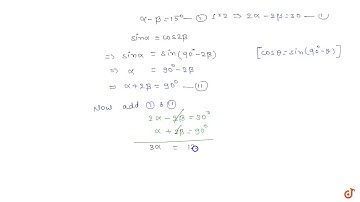 α-β=15° — ① ×2 ⇒ 2α-2β=30 — ①
sinα = cos2β
⇒ sinα = sin(90°-2β) [cosθ=sin(90°-θ)]
⇒ α = 90°-2β
⇒ α+2β = 90° — ⑪
Now add ① & ⑪
2α-2β=30°
α+2β=90°
3α = 12